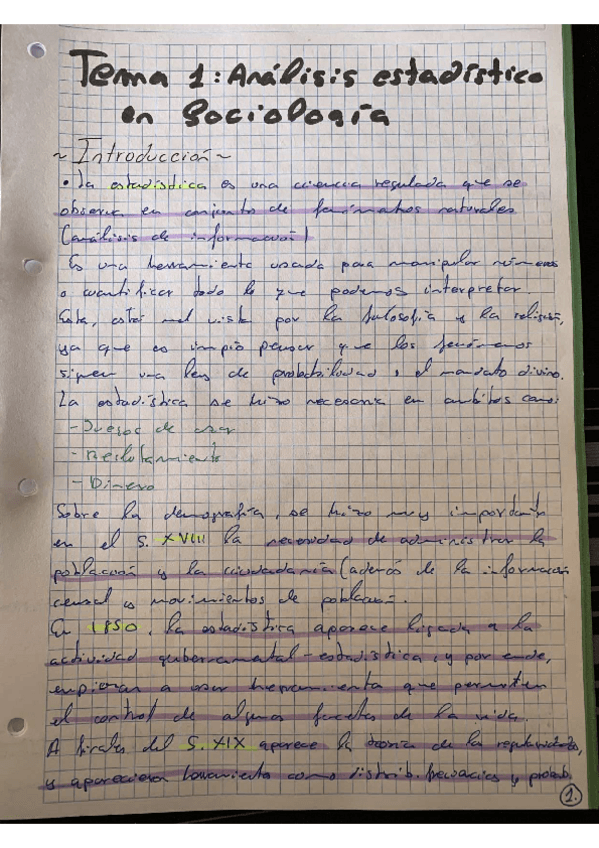 Tema 1: Análisis estadístico
en Sociología
~ Introducción ~
• La estadística es una ciencia regulada que se
observa en conjunto de fenómenos naturales
(análisis de información)
Es una herramienta usada para manipular números
o cuantificar todo lo que podemos interpretar.
Esta, está mal vista por la filosofía y la religión,
ya que es impío pensar que los fenómenos
siguen una ley de probabilidad y el mandato divino.
La estadística se hizo necesaria en ámbitos como:
- Juegos de azar
- Reclutamiento
- Dinero
Sobre la demografía, se hizo muy importante
en el S. XVIII la necesidad de administrar la
población y la ciudadanía (además de la información
censal y movimientos de población.
En 1850, la estadística aparece ligada a la
actividad gubernamental-estadística, y por ende,
empiezan a usar herramienta que permiten
el control de algunas facetas de la vida.
A finales del S. XIX aparece la teoría de la regularidad,
y aparecieron como distrib. frecuencias y probab.
1.